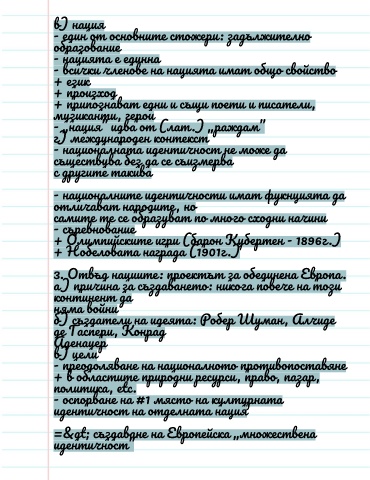 в) нация
- един от основните стожери: задължително
образование
- нацията е единна
- всички членове на нацията имат общо свойство
+ език
+ произход
+ припознават едни и същи поети и писатели,
музиканти, герои
- „нация" идва от (лат.) „раждам"
г) международен контекст
- националната идентичност не може да
съществува без да се съизмерва
с другите такива
- националните идентичности имат функцията да
отличават народите, но
самите те се образуват по много сходни начини
- съревнование
+ Олимпийските игри (барон Кубертен - 1896г.)
+ Нобеловата награда (1901г.)
3. Отвъд нациите: проектът за обединена Европа.
а) причина за създаването: никога повече на този
континент да
няма войни
б) създатели на идеята: Робер Шуман, Алчиде
де Гаспери, Конрад
Аденауер
в) цели
- преодоляване на националното противопоставяне
+ в областите природни ресурси, право, пазар,
политика, etc.
- оспорване на #1 място на културната
идентичност на отделната нация
=&gt; създавдне на Европейска „множествена
идентичност